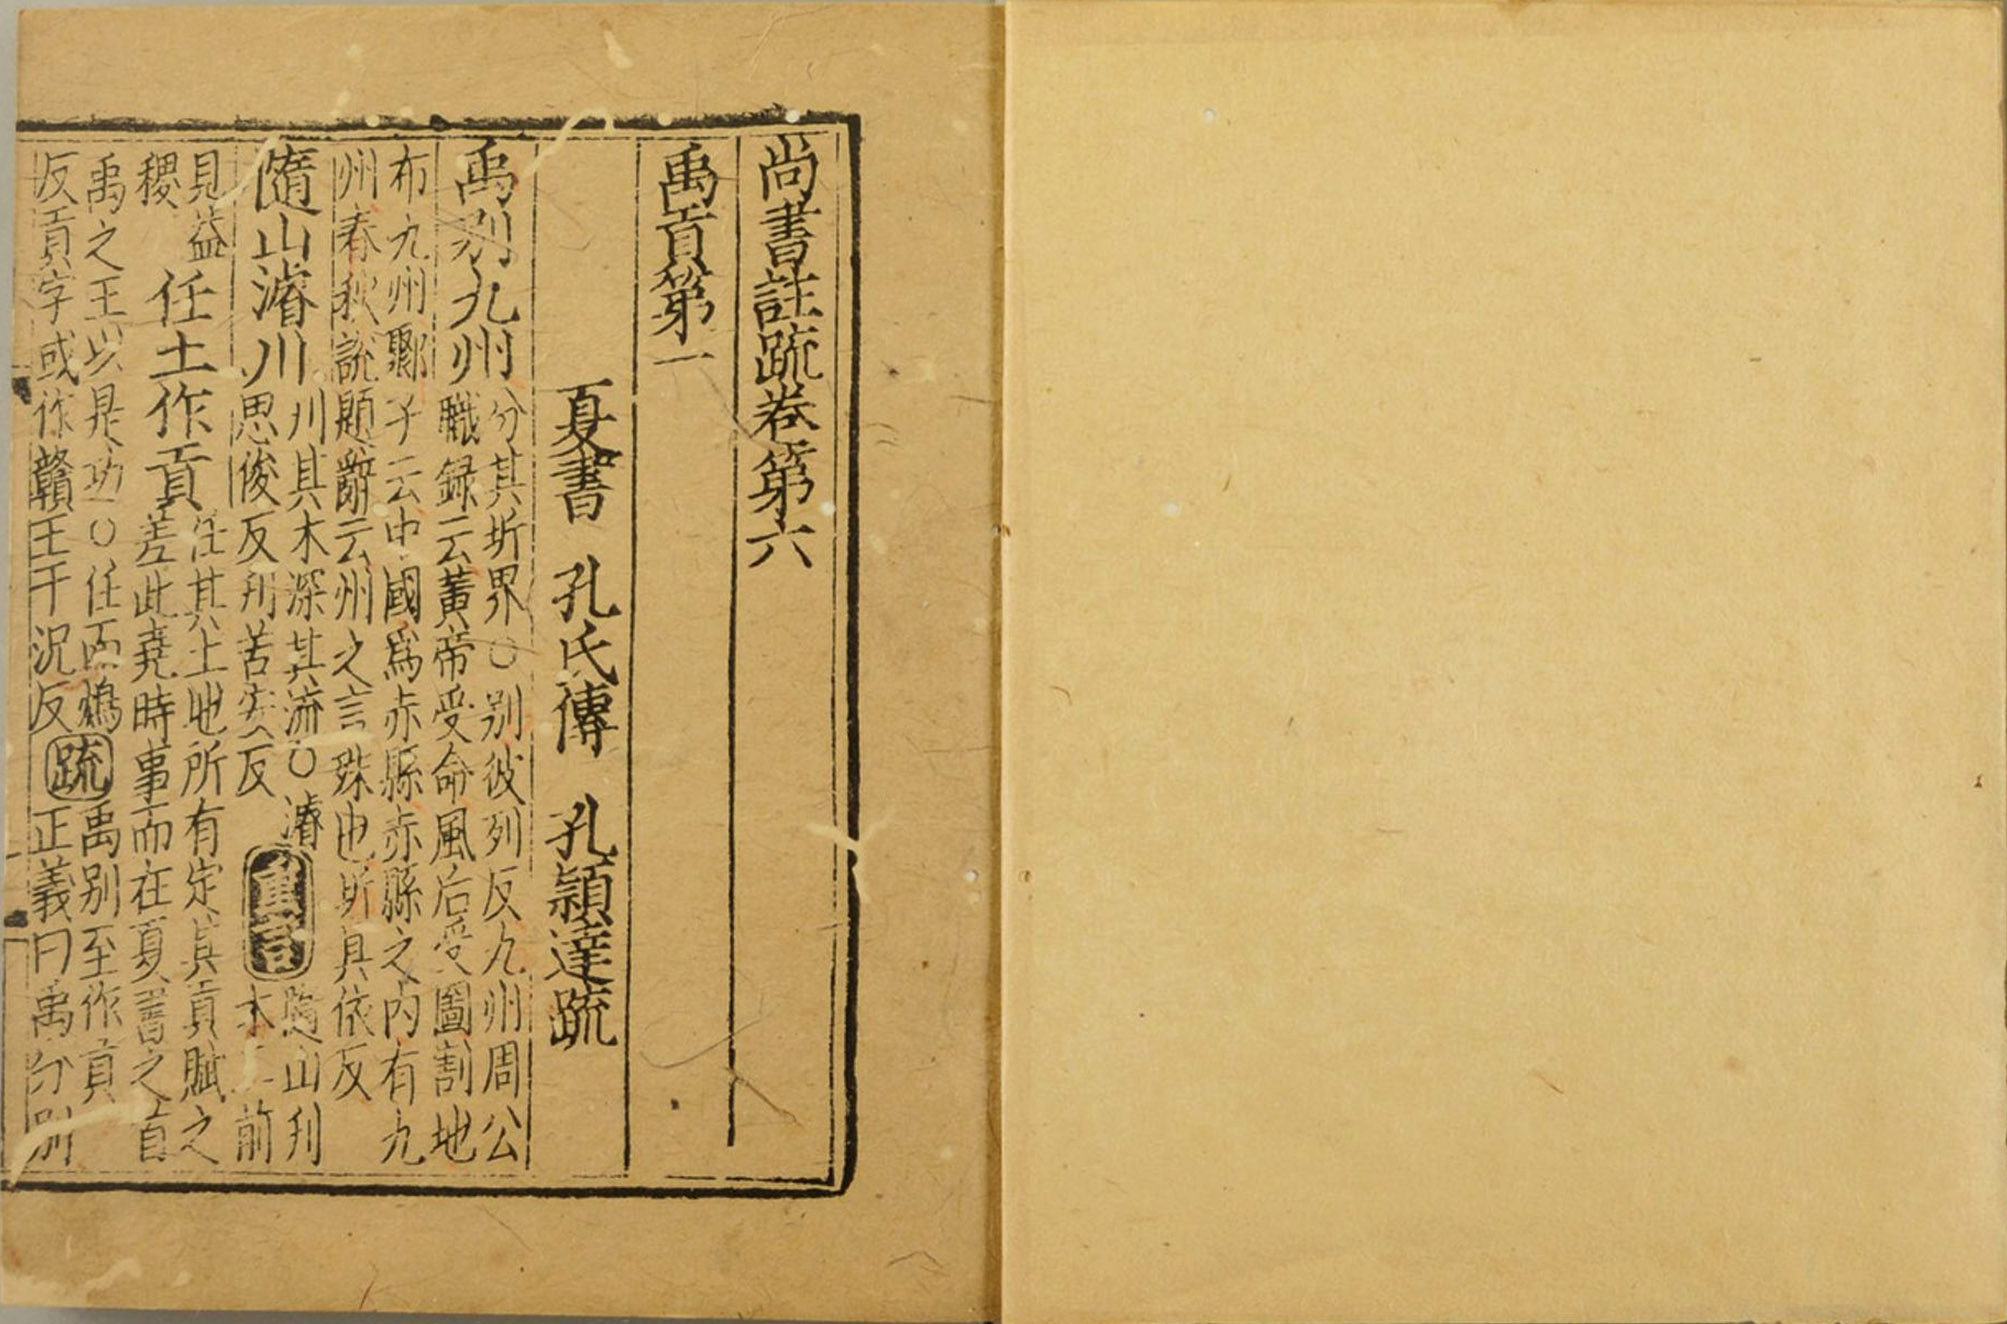 尚書註疏卷第六
禹貢第一
夏書 孔氏傳 孔穎達疏
禹别九州
分其圻界○别彼列反九州周公
職録云黄帝受命風后受圖割地
布九州鄹子云中國爲赤縣赤縣之内有九
州春秋說題辭云州之言殊也圻具依反
隨山濬川
刊其木深其流○濬
思俊反刊苦安反
重言
隨山刊
木前
見益
稷
任土作貢
任其土地所有定其貢賦之
差此堯時事而在夏書之首
禹之王以是功○任而鴆
反貢字或作贛王于況反
疏
禹别至作貢
正義曰禹分别